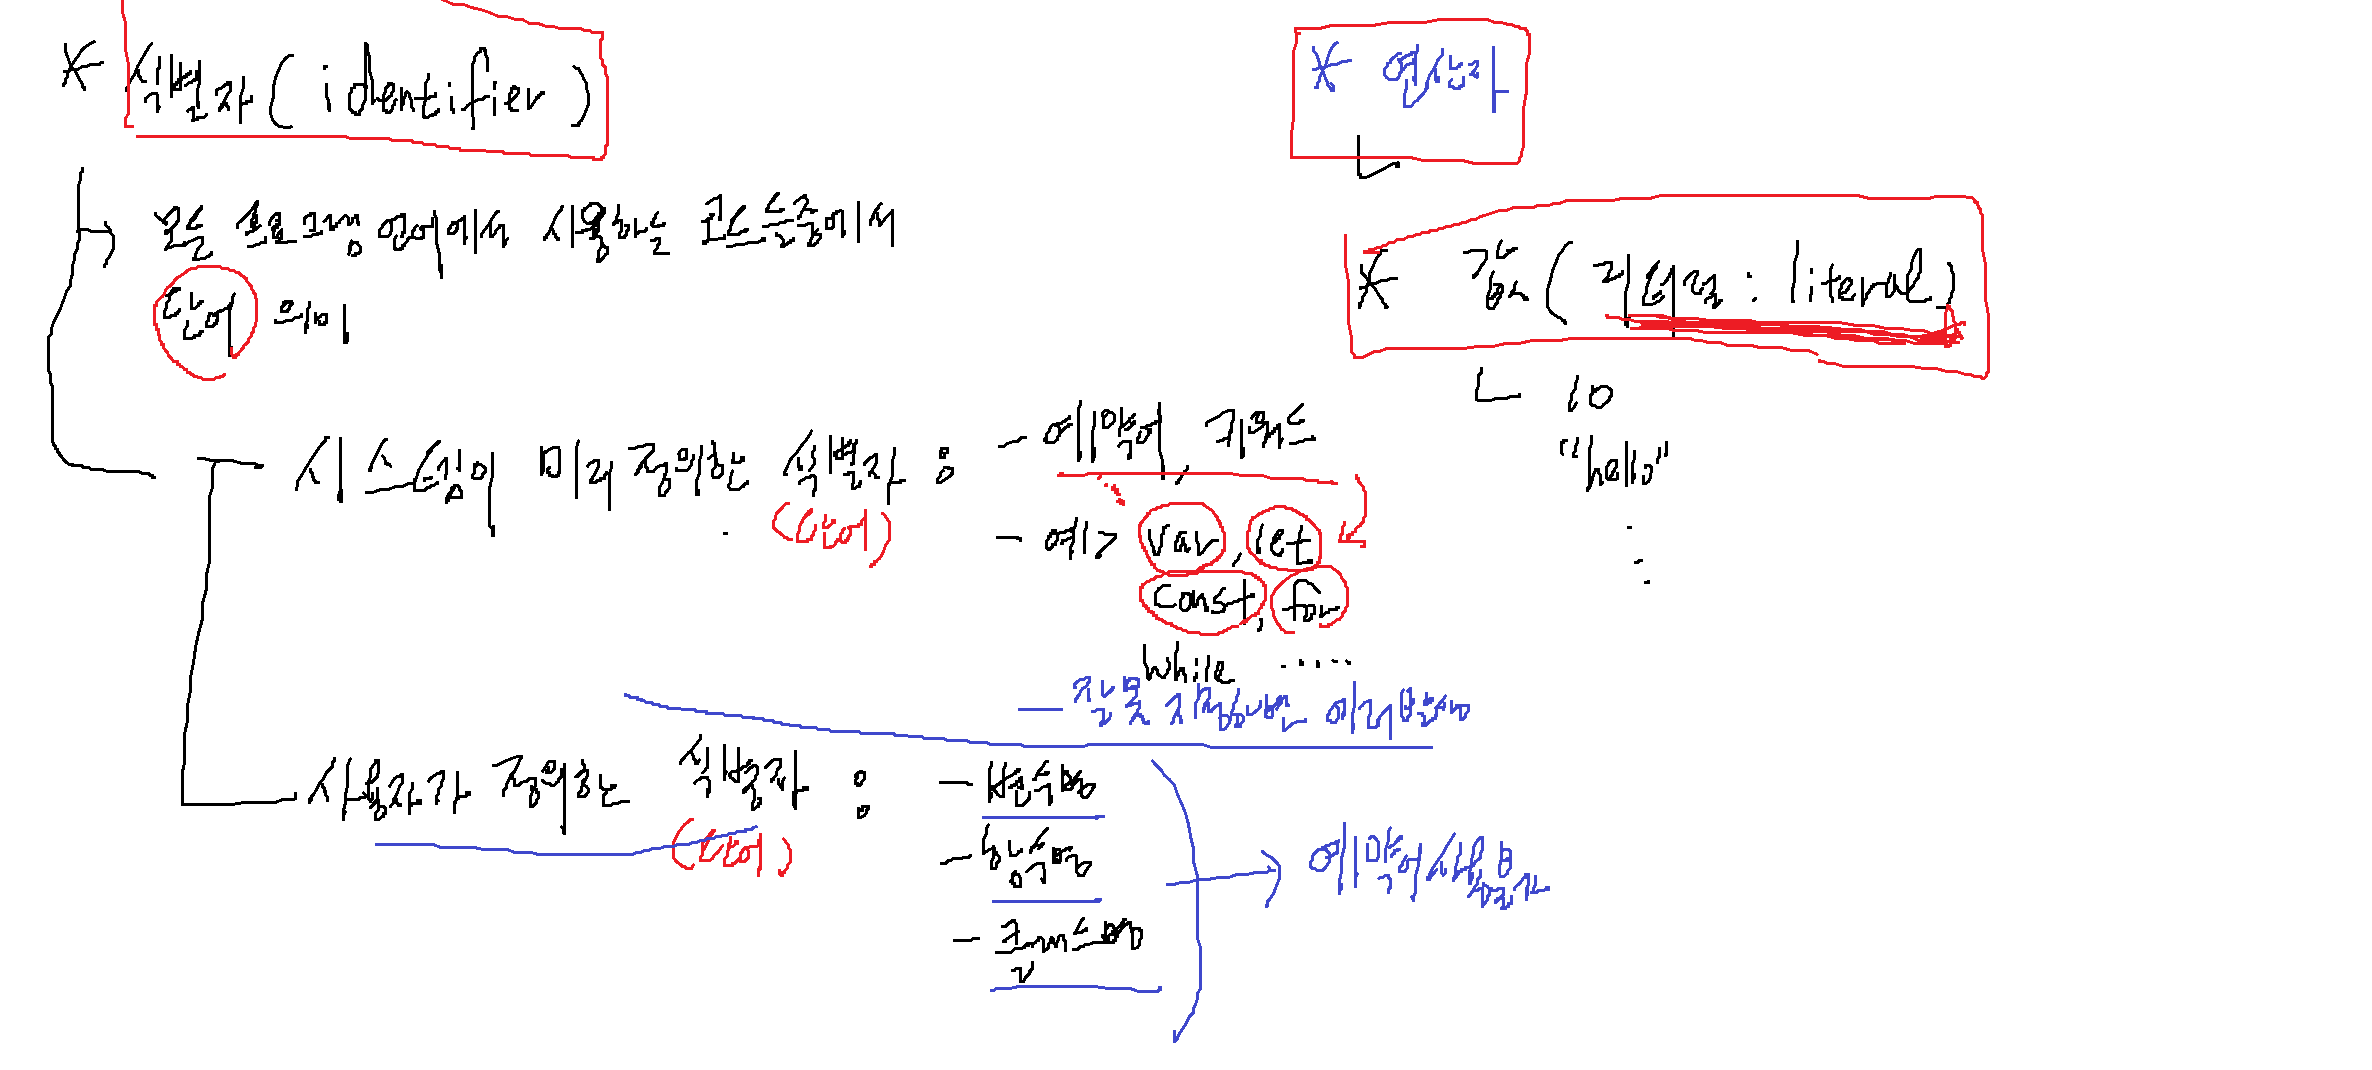 * 식별자(identifier)
모든 프로그램 언어에서 사용하는 코드들중에서
단어 의미
시스템이 미리 정의하는 식별자 :
(단어)
- 예약어, 키워드
- 예> var, let
const, for
while .....
- 잘못 지정하면 에러발생
사용자가 정의하는 식별자 :
(단어)
- 변수명
- 함수명
- 클래스명
예약어 사용불가
* 연산자
* 값(리터럴 : literal)
10
"hello"